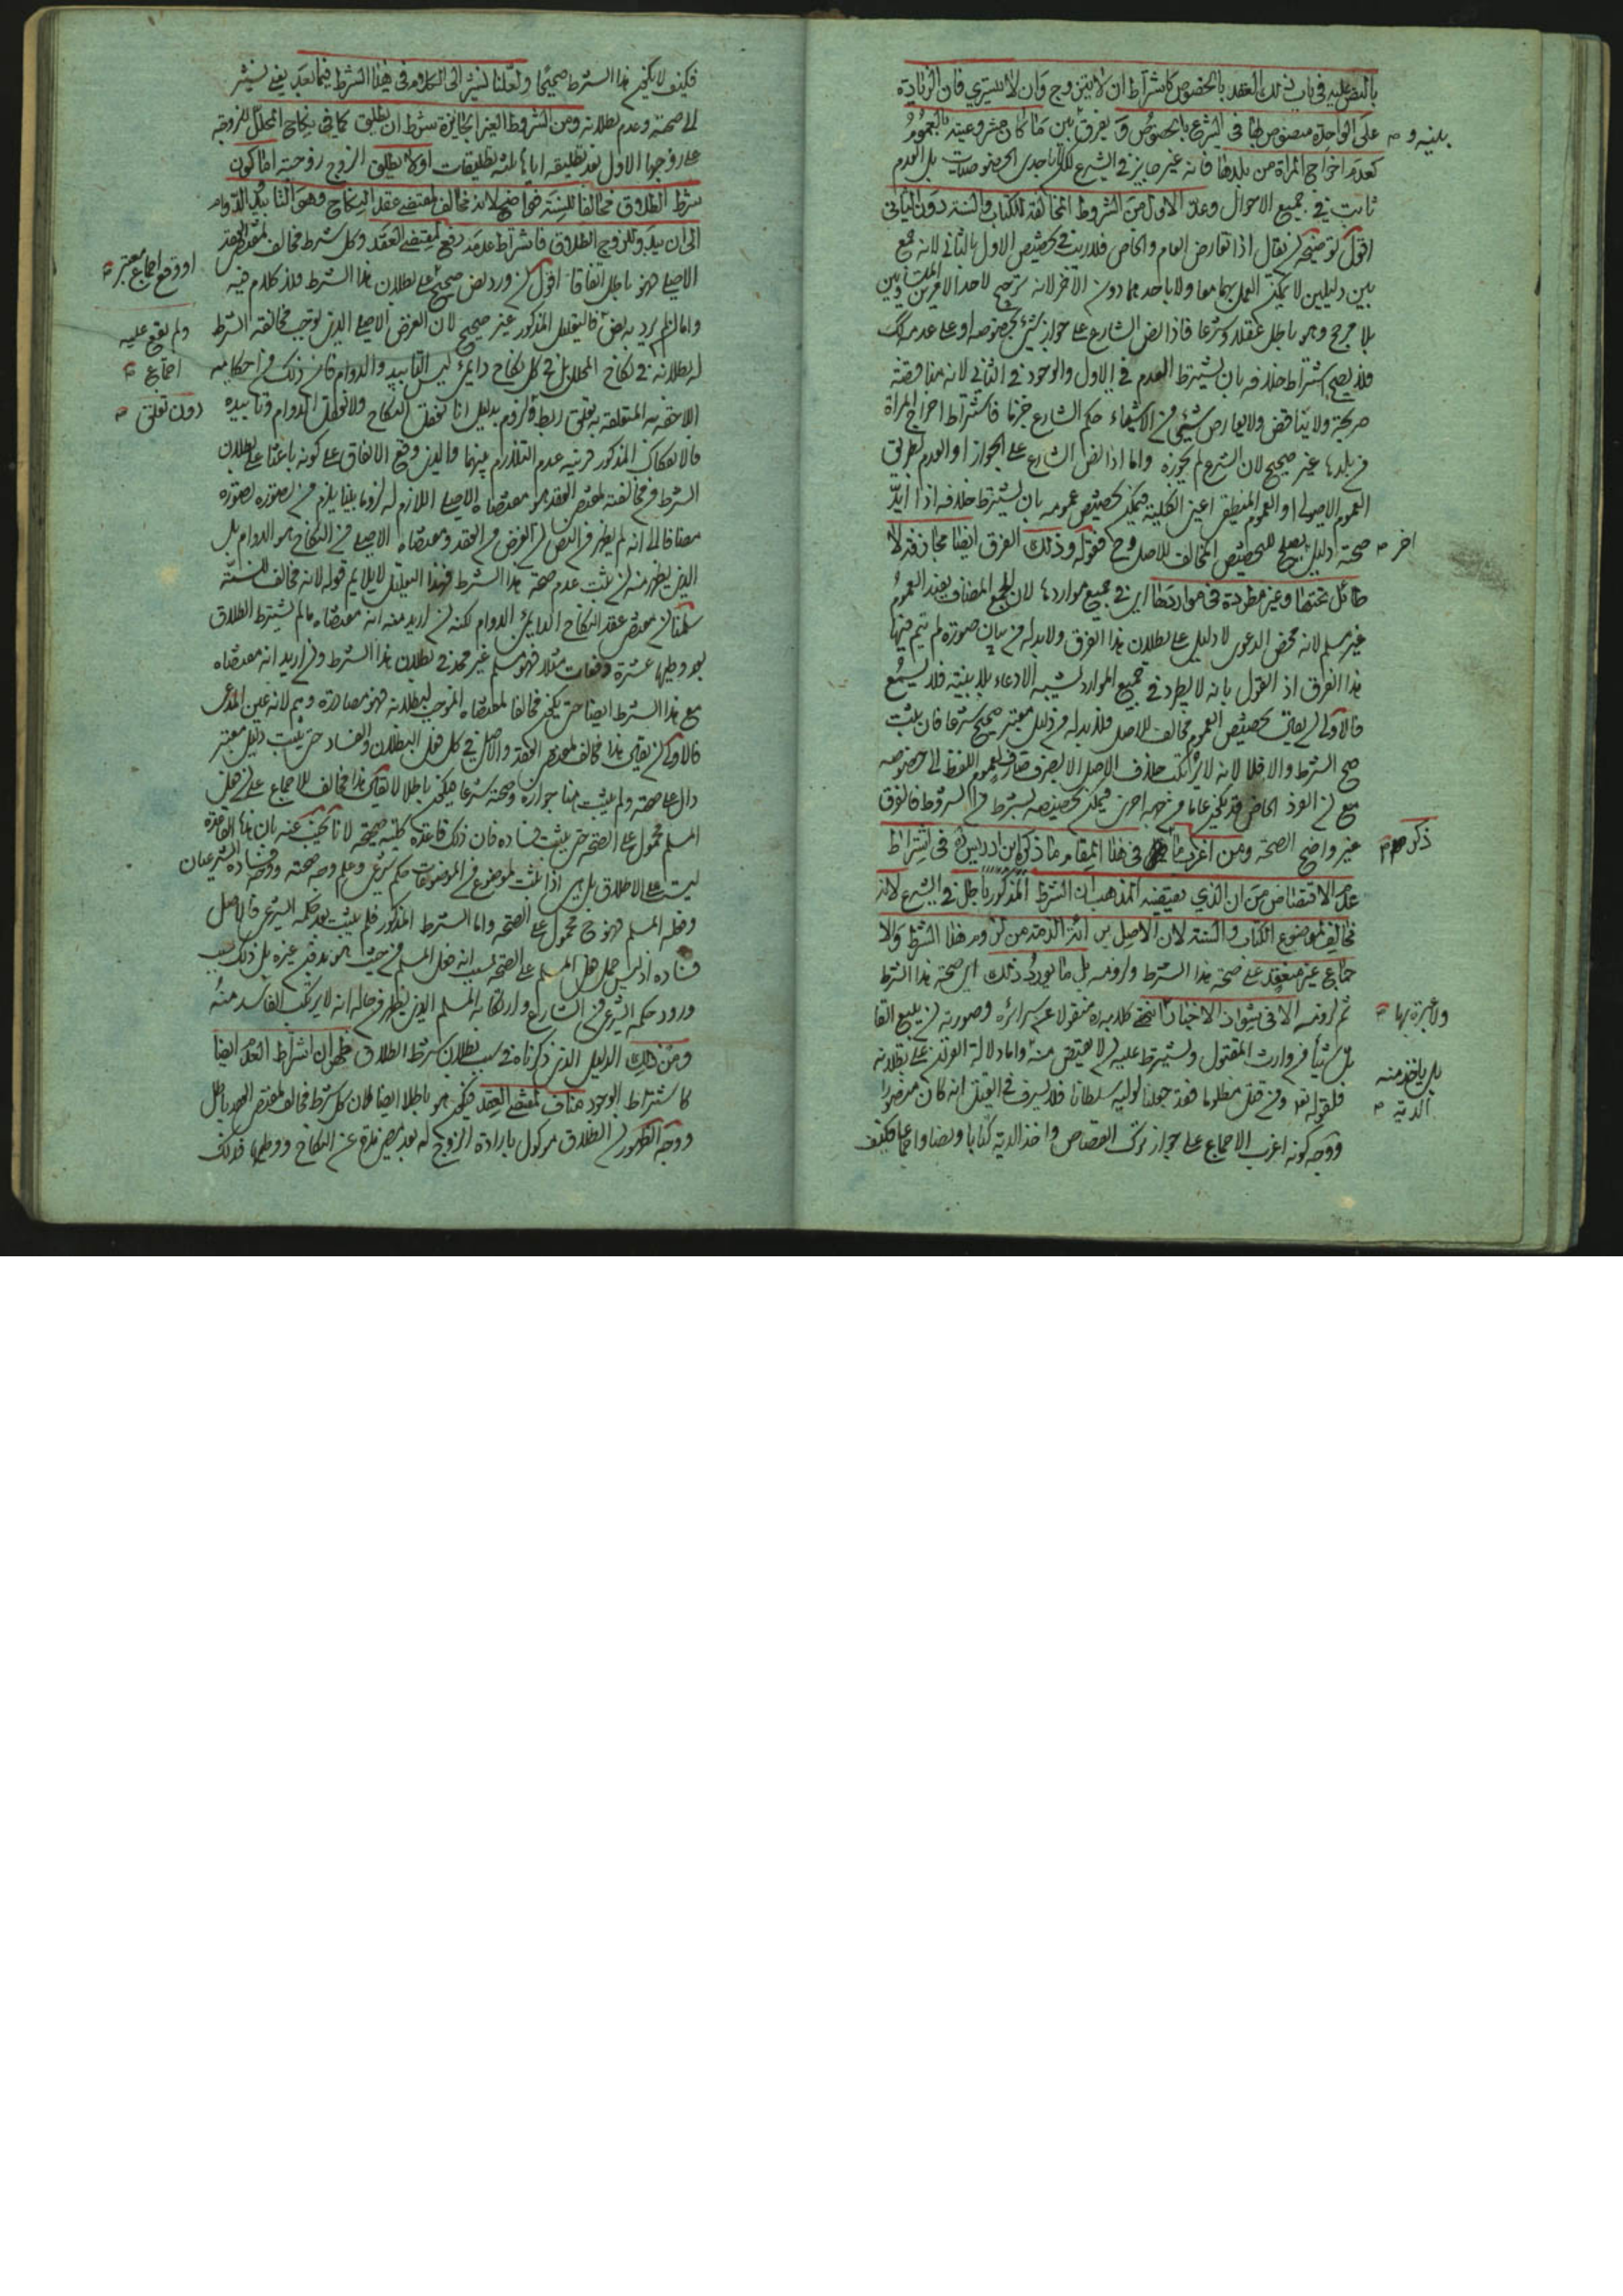 بالنص عليه في باب ذلك العقد بالخصوص كاشتراط ان لا يتزوج وان لا يتسري فان الزيادة
على الواحدة منصوص بها في الشرع بالخصوص و يفرق بين ما كان مشروعيته بالعموم
كعدم اخراج المراة من بلدها فانه غير جايز في الشرع لكن لا باحدى الخصوصيات بل العدم
ثابت في جميع الاحوال وعد الاول من الشروط المخالفة للكتاب والسنة دون الثاني
اقول توضيحه ان يقال اذا تعارض العام والخاص فلا ريب في تخصيص الاول بالثاني لانه جمع
بين دليلين لا يمكن العمل بهما معا ولا باحدهما دون الاخر لانه ترجيح لاحد الامرين
بلا مرجح وهو باطل عقلا وشرعا فاذا نص الشارع على جواز شئ بخصوصه او على عدمه
فلا يصح اشتراط خلافه بان يشترط العدم في الاول والوجود في الثاني لانه مناقضة
صريحة ولا يناقض ولا يعارض شيئ من الاشياء حكم الشارع جزما فاشتراط اخراج المراة
من بلدها غير صحيح لان الشرع لم يجوزه واما اذا نص الشارع على الجواز او العدم بطريق
العموم الاصولي او العموم المنطقي اعني الكلية فيمكن تخصيص عمومه بان يشترط خلافه اذا
صحته دليل يصلح للتخصيص المخالف للاصل وح فقوله وذلك الفرق ايضا مجازفة لا
طائل تحتها وغير مطردة في مواردها اي في جميع مواردها لان الجمع المضاف يفيد العموم
غير مسلم لانه محض الدعوى لا دليل على بطلان هذا الفرق ولا بد له من بيان صورة لم يتم فيها
هذا الفرق اذ القول بانه لا يطرد في جميع الموارد يشبه الادعاء بلا بينة فلا يسمع
فالاولى ان يقال تخصيص العموم مخالف للاصل فلا بد له من دليل معتبر صحيح شرعا فان يثبت
صح الشرط والا فلا لانه لا يرتكب خلاف الاصل الا بصرف صارف لعموم اللفظ الى خصوصه
مع ان الفرد الخاص قد يكون عاما من جهة اخرى فيمكن تخصيصه بشرط من الشروط فالفرق
غير واضح الصحة ومن اغرب ما في هذا المقام ما ذكره ابن ادريس في اشتراط
عدم الاقتضاض من ان الذي يقتضيه المذهب ان الشرط المذكور باطل في الشرع لانه
مخالف لموضوع الكتاب والسنة لان الاصل برائة الذمة من لزوم هذا الشرط والا
جماع غير منعقد على صحة هذا الشرط ولزومه بل ما يورد ذلك اي صحة هذا الشرط
ثم لزومه الا في شواذ الاخبار انتهى كلامه
بل شيئا من وارث المقتول ويشترط عليه ان لا يقتص منه واما دلالة القران على بطلانه
فلقوله تعا ومن قتل مظلوما فقد جعلنا لوليه سلطانا فلا يسرف في القتل انه كان منصورا
ووجه كونه اغرب الاجماع على جواز ترك القصاص واخذ الدية كتابا ونصا واجماعا فكيف
اخر
ذكر
ولا عبرة بها
بل ياخذ منه
الدية
فكيف لا يكون هذا الشرط صحيحا ولعلنا نشير الى الكلام في هذا الشرط فيما بعد يعني نشير
الى صحته وعدم بطلانه ومن الشروط الغير الجايزة شرط ان يطلق كما في نكاح المحلل للزوجة
على زوجها الاول بعد تطليقه اياها ثلثة تطليقات او لا يطلق الزوج زوجته اما كون
شرط الطلاق مخالفا للسنة فواضح لانه مخالف لمقتضى عقد النكاح وهو التابيد والدوام
الى ان يبدو للزوج الطلاق فاشتراط عدمه رفع لمقتضى العقد وكل شرط مخالف لمقتضى العقد
الاصلي فهو باطل اتفاقا اقول ان ورد نص صحيح على بطلان هذا الشرط فلا كلام فيه
واما ان لم يرد به نص فالتعليل المذكور غير صحيح لان الغرض الاصلي الذي توجب مخالفته الشرط
له بطلانه في نكاح المحلل بل في كل نكاح دايمي ليس التابيد والدوام فان ذلك من احكامه
اللاحقة به المتعلقة به تعلق ربط ولزوم بدليل انا نعقل النكاح ولا نعقل الدوام وتابيده
فالانفكاك المذكور قرينة عدم التلازم بينهما والذي وقع الاتفاق على كونه باعثا على بطلان
الشرط من مخالفته لمقتضى العقد هو مقتضاه الاصلي اللازم له لزوما بينا يلزم من تصوره تصوره
مضافا الى انه لم يظهر من النص ان الغرض من العقد ومقتضاه الاصلي في النكاح هو الدوام بل
الذي يظهر منه ان يثبت عدم صحة هذا الشرط فهذا التعليل لا يلايم قوله لانه مخالف للسنة
سلمنا ان مقتضى عقد النكاح الدايمي الدوام لكنه ان اريد منه انه مقتضاه ما لم يشترط الطلاق
بعد وطيها عشرة دفعات مثلا فهو مسلم غير مجد في بطلان هذا الشرط وان اريد انه مقتضاه
مع هذا الشرط ايضا حتى يكون مخالفا لمقتضاه الموجب لبطلانه فهو مصادرة وهم لانه عين المدعى
فالاولى ان يقال هذا مخالف لمقتضى العقد والاصل في كل فعل البطلان والفساد حتى يثبت دليل معتبر
دال على صحته ولم يثبت هنا جوازه وصحته شرعا فيكون باطلا لا يقال هذا مخالف للاجماع على ان فعل
المسلم محمول على الصحة حتى يثبت فساده فان ذلك قاعدة كلية صحيحة لانا نجيب عنه بان هذه القاعدة
ليست على الاطلاق بل هي اذا ثبت لموضوع من الموضوعات حكم شرعي وعلم وجه صحته ووجه فساده الشرعيان
وفعله المسلم فهو ح محمول على الصحة واما الشرط المذكور فلم يثبت بعد حكمه الشرعي فالاصل
فساده اذ ليس حمل فعل المسلم على الصحة بسبب انه فعل المسلم من حيث هو هو من غيره بل ذلك بسبب
ورود حكمه الشرعي من الشارع وارتكابه المسلم الذي يظهر من حاله انه لا يرتكب الفاسد منه
ومن ذلك الدليل الذي ذكرناه في سبب بطلان شرط الطلاق ظهر ان اشتراط العدم ايضا
كاشتراط الوجود مناف لمقتضى العقد فيكون هو باطلا ايضا لان كل شرط مخالف لمقتضى العقد باطل
ووجه الظهور ان الطلاق موكول بارادة الزوج له بعد مضي مدة عن النكاح ووطيها فذلك
او وقع اجماع معتبر
ولم يقع عليه
اجماع
دون تعلق